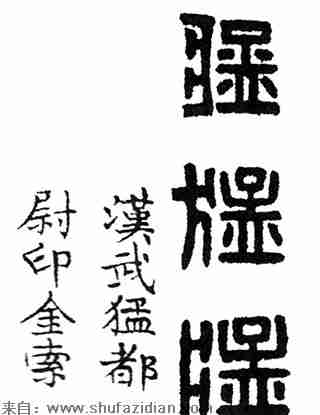 猛猛猛
漢武猛都
尉印金索
来自：www.shufazidian.com